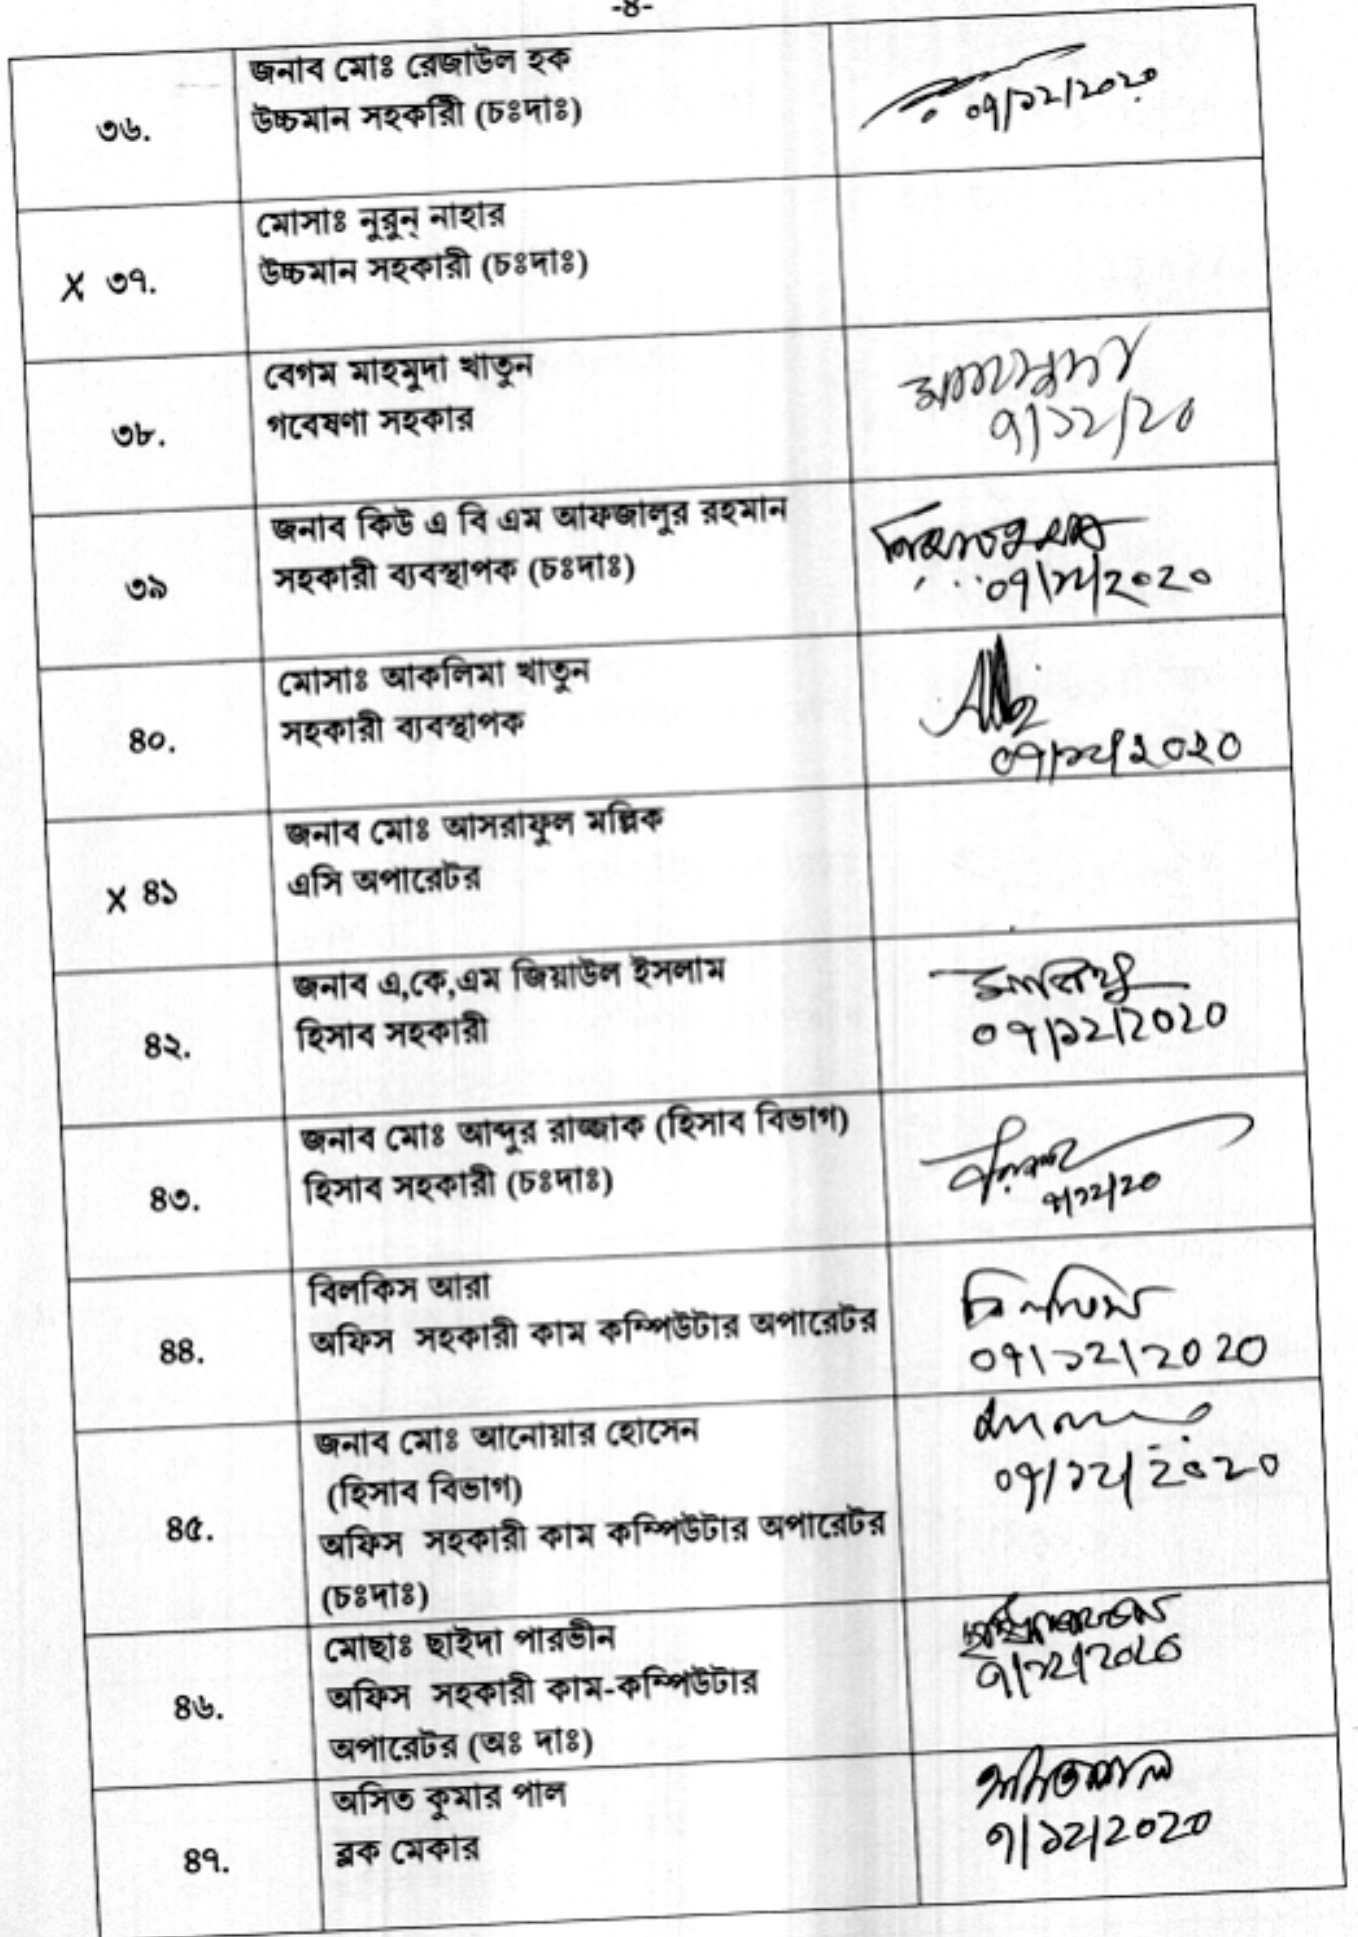 -৪-
৩৬.
জনাব মোঃ রেজাউল হক
উচ্চমান সহকারিী (চঃদাঃ)
০৭/১২/২০২০
X ৩৭.
মোসাঃ নুরুন্ নাহার
উচ্চমান সহকারী (চঃদাঃ)
৩৮.
বেগম মাহমুদা খাতুন
গবেষণা সহকার
মাহমুদা
৭/১২/২০
৩৯
জনাব কিউ এ বি এম আফজালুর রহমান
সহকারী ব্যবস্থাপক (চঃদাঃ)
০৭/১২/২০২০
৪০.
মোসাঃ আকলিমা খাতুন
সহকারী ব্যবস্থাপক
০৭/১২/২০২০
X ৪১
জনাব মোঃ আসরাফুল মল্লিক
এসি অপারেটর
৪২.
জনাব এ,কে,এম জিয়াউল ইসলাম
হিসাব সহকারী
০৭/১২/২০২০
৪৩.
জনাব মোঃ আব্দুর রাজ্জাক (হিসাব বিভাগ)
হিসাব সহকারী (চঃদাঃ)
৭/১২/২০
৪৪.
বিলকিস আরা
অফিস সহকারী কাম কম্পিউটার অপারেটর
বিলকিস
০৭/১২/২০২০
৪৫.
জনাব মোঃ আনোয়ার হোসেন
(হিসাব বিভাগ)
অফিস সহকারী কাম কম্পিউটার অপারেটর
(চঃদাঃ)
০৭/১২/২০২০
৪৬.
মোছাঃ ছাইদা পারভীন
অফিস সহকারী কাম-কম্পিউটার
অপারেটর (অঃ দাঃ)
৭/১২/২০২০
৪৭.
অসিত কুমার পাল
ব্লক মেকার
অসিতপাল
৭/১২/২০২০